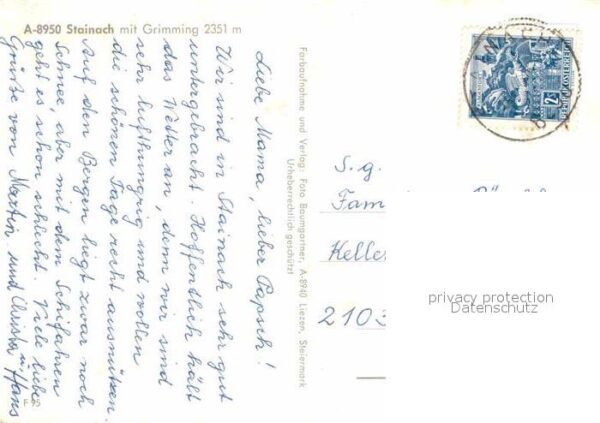 A-8950 Stainach mit Grimming 2351 m
Liebe Mama, lieber Papsch!
Wir sind in Stainach sehr gut
untergebracht. Hoffentlich hält
das Wetter an, denn wir sind
sehr lufthungrig und wollen
die schönen Tage recht ausnützen.
Auf den Bergen liegt zwar noch
Schnee, aber mit dem Schifahren
geht es schon schlecht. Viele liebe
Grüße von Martin und Christa u. Hans
E 95
Farbaufnahme und Verlag: Foto Baumgartner, A-8940 Liezen, Steiermark
Urheberrechtlich geschützt
REPUBLIK ÖSTERREICH
S. g.
Fam
Kelle
2103
privacy protection
Datenschutz